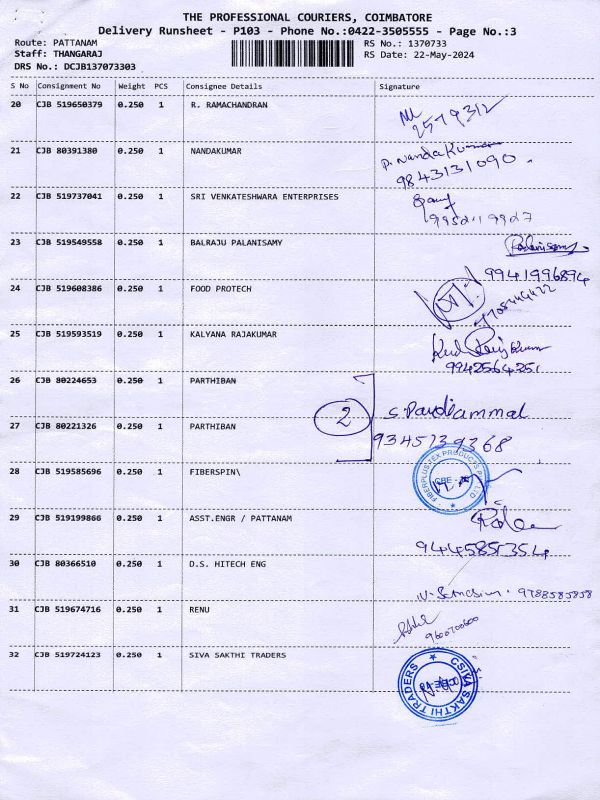 THE PROFESSIONAL COURIERS, COIMBATORE
Delivery Runsheet - P103 - Phone No.:0422-3505555 - Page No.:3
Route: PATTANAM
Staff: THANGARAJ
DRS No.: DCJB137073303
RS No.: 1370733
RS Date: 22-May-2024
S No Consignment No Weight PCS Consignee Details Signature
20 CJB 519650379 0.250 1 R. RAMACHANDRAN
21 CJB 80391380 0.250 1 NANDAKUMAR P. Nanda Kumar
9843131090
22 CJB 519737041 0.250 1 SRI VENKATESHWARA ENTERPRISES
23 CJB 519549558 0.250 1 BALRAJU PALANISAMY Palanisamy
9941996894
24 CJB 519608386 0.250 1 FOOD PROTECH
25 CJB 519593519 0.250 1 KALYANA RAJAKUMAR
9942564351
26 CJB 80224653 0.250 1 PARTHIBAN 2 S. Pandiammal
27 CJB 80221326 0.250 1 PARTHIBAN 9345739368
28 CJB 519585696 0.250 1 FIBERSPIN\ FIBERPLUS TEX PRODUCTS PVT LTD CBE
29 CJB 519199866 0.250 1 ASST.ENGR / PATTANAM
9445851354
30 CJB 80366510 0.250 1 D.S. HITECH ENG 9788585858
31 CJB 519674716 0.250 1 RENU
9600700600
32 CJB 519724123 0.250 1 SIVA SAKTHI TRADERS SIVA SAKTHI TRADERS